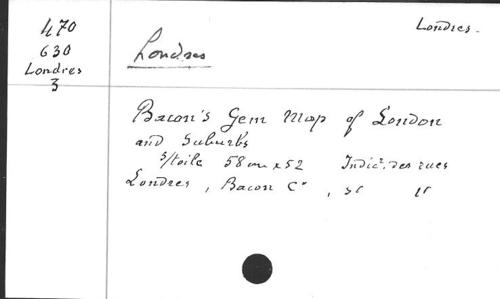 470
630
Londres
3
Londres.
Londres
Bacon's Gem Map of London
and Suburbs
s/toile 58 cm x 52 Indic. des rues
Londres, Bacon Co,